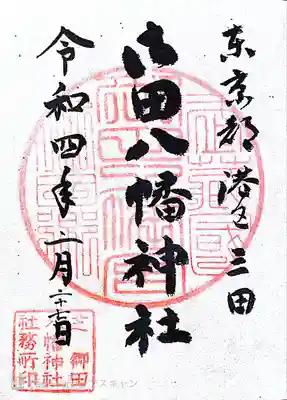 東京都港区三田
御田八幡神社
令和四年二月二十七日
御田
八幡神社
社務所印